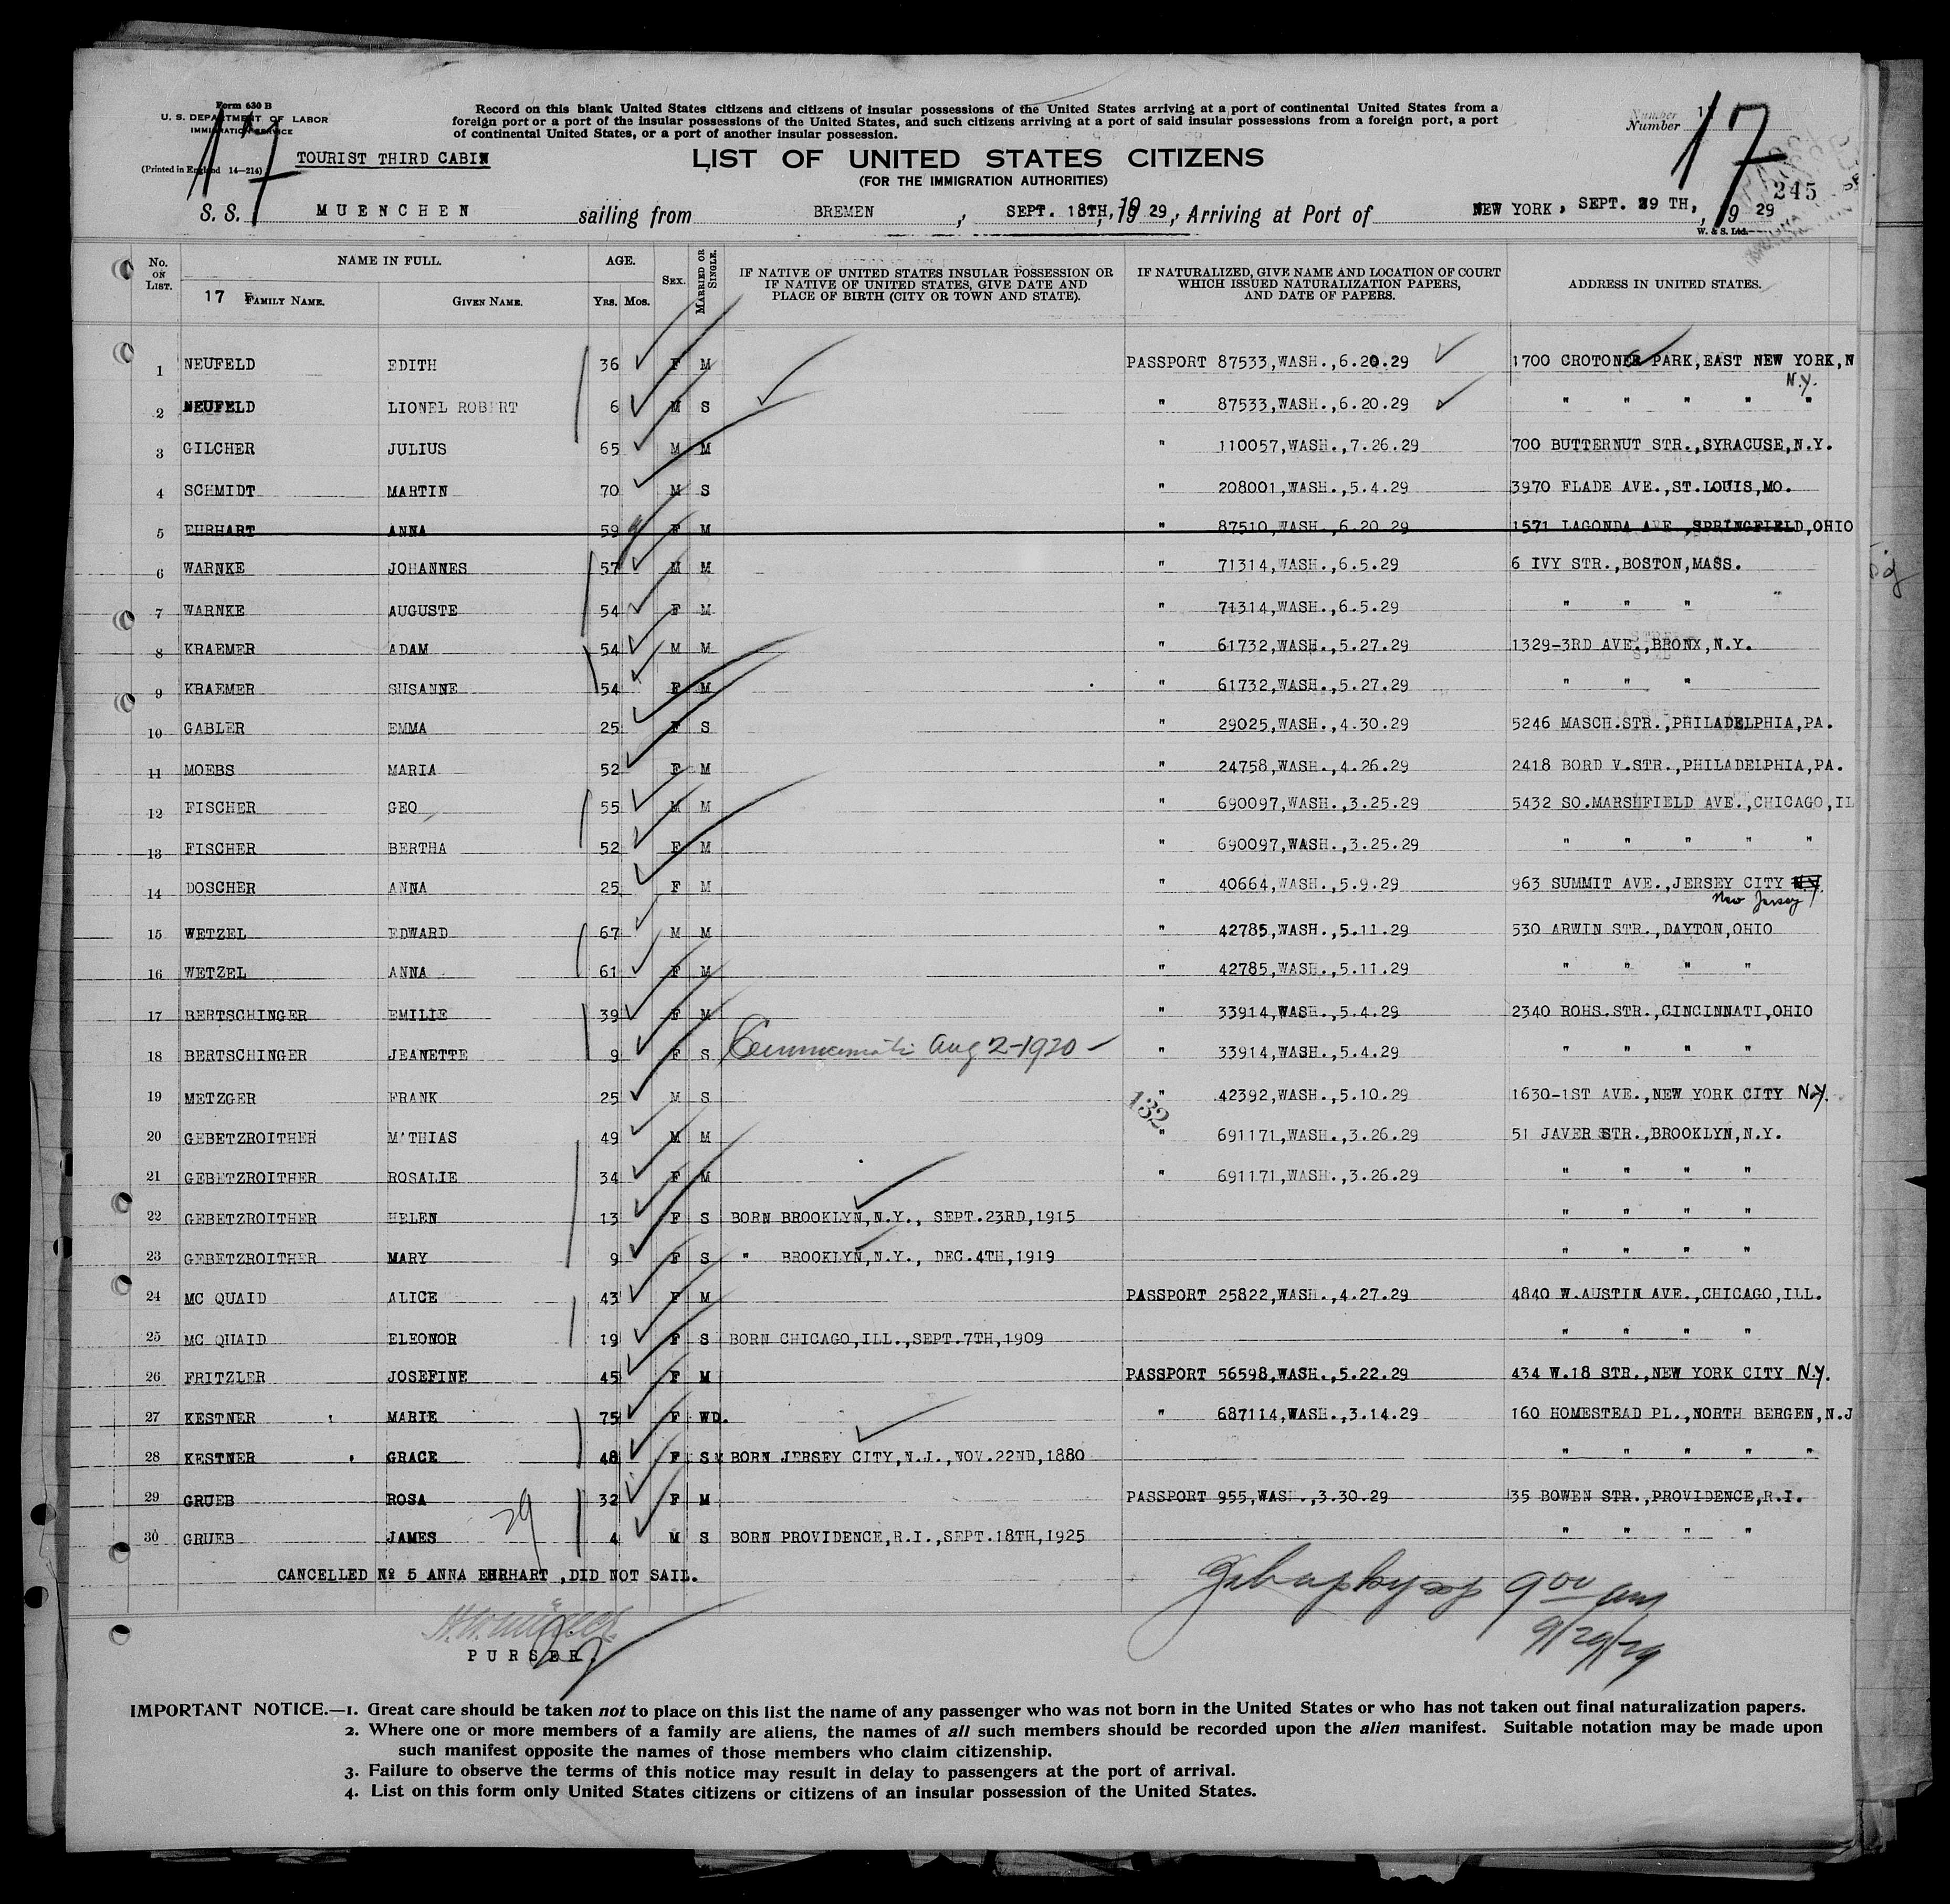 Form 630 B
U. S. DEPARTMENT OF LABOR
IMMIGRATION SERVICE
(Printed in England 14—214)
17
TOURIST THIRD CABIN
Record on this blank United States citizens and citizens of insular possessions of the United States arriving at a port of continental United States from a
foreign port or a port of the insular possessions of the United States, and such citizens arriving at a port of said insular possessions from a foreign port, a port
of continental United States, or a port of another insular possession.
LIST OF UNITED STATES CITIZENS
(FOR THE IMMIGRATION AUTHORITIES)
Number 17
245
S. S. MUENCHEN sailing from BREMEN, SEPT. 18TH, 19 29, Arriving at Port of NEW YORK, SEPT. 29 TH, 19 29
W. & S. Ltd.
No. ON LIST. NAME IN FULL. AGE. SEX. MARRIED OR SINGLE. IF NATIVE OF UNITED STATES INSULAR POSSESSION OR IF NATIVE OF UNITED STATES, GIVE DATE AND PLACE OF BIRTH (CITY OR TOWN AND STATE). IF NATURALIZED, GIVE NAME AND LOCATION OF COURT WHICH ISSUED NATURALIZATION PAPERS, AND DATE OF PAPERS. ADDRESS IN UNITED STATES.
17 FAMILY NAME. GIVEN NAME. YRS. MOS.
1 NEUFELD EDITH 36 F M PASSPORT 87533,WASH.,6.20.29 1700 CROTONER PARK,EAST NEW YORK,N
N.Y.
2 NEUFELD LIONEL ROBERT 6 M S " 87533,WASH.,6.20.29 " " " " "
3 GILCHER JULIUS 65 M M " 110057,WASH.,7.26.29 700 BUTTERNUT STR.,SYRACUSE,N.Y.
4 SCHMIDT MARTIN 70 M S " 208001,WASH.,5.4.29 3970 FLADE AVE.,ST.LOUIS,MO.
5 EHRHART ANNA 59 F M " 87510,WASH.,6.20.29 1571 LAGONDA AVE.,SPRINGFIELD,OHIO
6 WARNKE JOHANNES 57 M M " 71314,WASH.,6.5.29 6 IVY STR.,BOSTON,MASS.
7 WARNKE AUGUSTE 54 F M " 71314,WASH.,6.5.29 " " " "
8 KRAEMER ADAM 54 M M " 61732,WASH.,5.27.29 1329-3RD AVE.,BRONX,N.Y.
9 KRAEMER SUSANNE 54 F M " 61732,WASH.,5.27.29 " " "
10 GABLER EMMA 25 F S " 29025,WASH.,4.30.29 5246 MASCH.STR.,PHILADELPHIA,PA.
11 MOEBS MARIA 52 F M " 24758,WASH.,4.26.29 2418 BORD V.STR.,PHILADELPHIA,PA.
12 FISCHER GEO 55 M M " 690097,WASH.,3.25.29 5432 SO.MARSHFIELD AVE.,CHICAGO,IL
13 FISCHER BERTHA 52 F M " 690097,WASH.,3.25.29 " " " " "
14 DOSCHER ANNA 25 F M " 40664,WASH.,5.9.29 963 SUMMIT AVE.,JERSEY CITY N.Y.
New Jersey
15 WETZEL EDWARD 67 M M " 42785,WASH.,5.11.29 530 ARWIN STR.,DAYTON,OHIO
16 WETZEL ANNA 61 F M " 42785,WASH.,5.11.29 " " " "
17 BERTSCHINGER EMILIE 39 F M " 33914,WASH.,5.4.29 2340 ROHS.STR.,CINCINNATI,OHIO
18 BERTSCHINGER JEANETTE 9 F S Cincinnati Aug 2-1920 " 33914,WASH.,5.4.29 " " " "
19 METZGER FRANK 25 M S " 42392,WASH.,5.10.29 1630-1ST AVE.,NEW YORK CITY N.Y.
132
20 GEBETZROITHER M'THIAS 49 M M " 691171,WASH.,3.26.29 51 JAVER STR.,BROOKLYN,N.Y.
21 GEBETZROITHER ROSALIE 34 F M " 691171,WASH.,3.26.29 " " " "
22 GEBETZROITHER HELEN 13 F S BORN BROOKLYN,N.Y., SEPT.23RD,1915 " " " "
23 GEBETZROITHER MARY 9 F S " BROOKLYN,N.Y., DEC.4TH,1919 " " " "
24 MC QUAID ALICE 43 F M PASSPORT 25822,WASH.,4.27.29 4840 W.AUSTIN AVE.,CHICAGO,ILL.
25 MC QUAID ELEONOR 19 F S BORN CHICAGO,ILL.,SEPT.7TH,1909 " " " "
26 FRITZLER JOSEFINE 45 F M PASSPORT 56598,WASH.,5.22.29 434 W.18 STR.,NEW YORK CITY N.Y.
27 KESTNER MARIE 75 F WD. " 687114,WASH.,3.14.29 160 HOMESTEAD PL.,NORTH BERGEN,N.J
28 KESTNER GRACE 48 F S BORN JERSEY CITY,N.J.,NOV.22ND,1880 " " " " "
29 GRUEB ROSA 32 F M PASSPORT 955,WASH.,3.30.29 35 BOWEN STR.,PROVIDENCE,R.I.
30 GRUEB JAMES 4 M S BORN PROVIDENCE,R.I.,SEPT.18TH,1925 " " " "
29
CANCELLED No 5 ANNA EHRHART ,DID NOT SAIL.
9 00 am
9/29/29
PURSER.
IMPORTANT NOTICE.—1. Great care should be taken not to place on this list the name of any passenger who was not born in the United States or who has not taken out final naturalization papers.
2. Where one or more members of a family are aliens, the names of all such members should be recorded upon the alien manifest. Suitable notation may be made upon
such manifest opposite the names of those members who claim citizenship.
3. Failure to observe the terms of this notice may result in delay to passengers at the port of arrival.
4. List on this form only United States citizens or citizens of an insular possession of the United States.